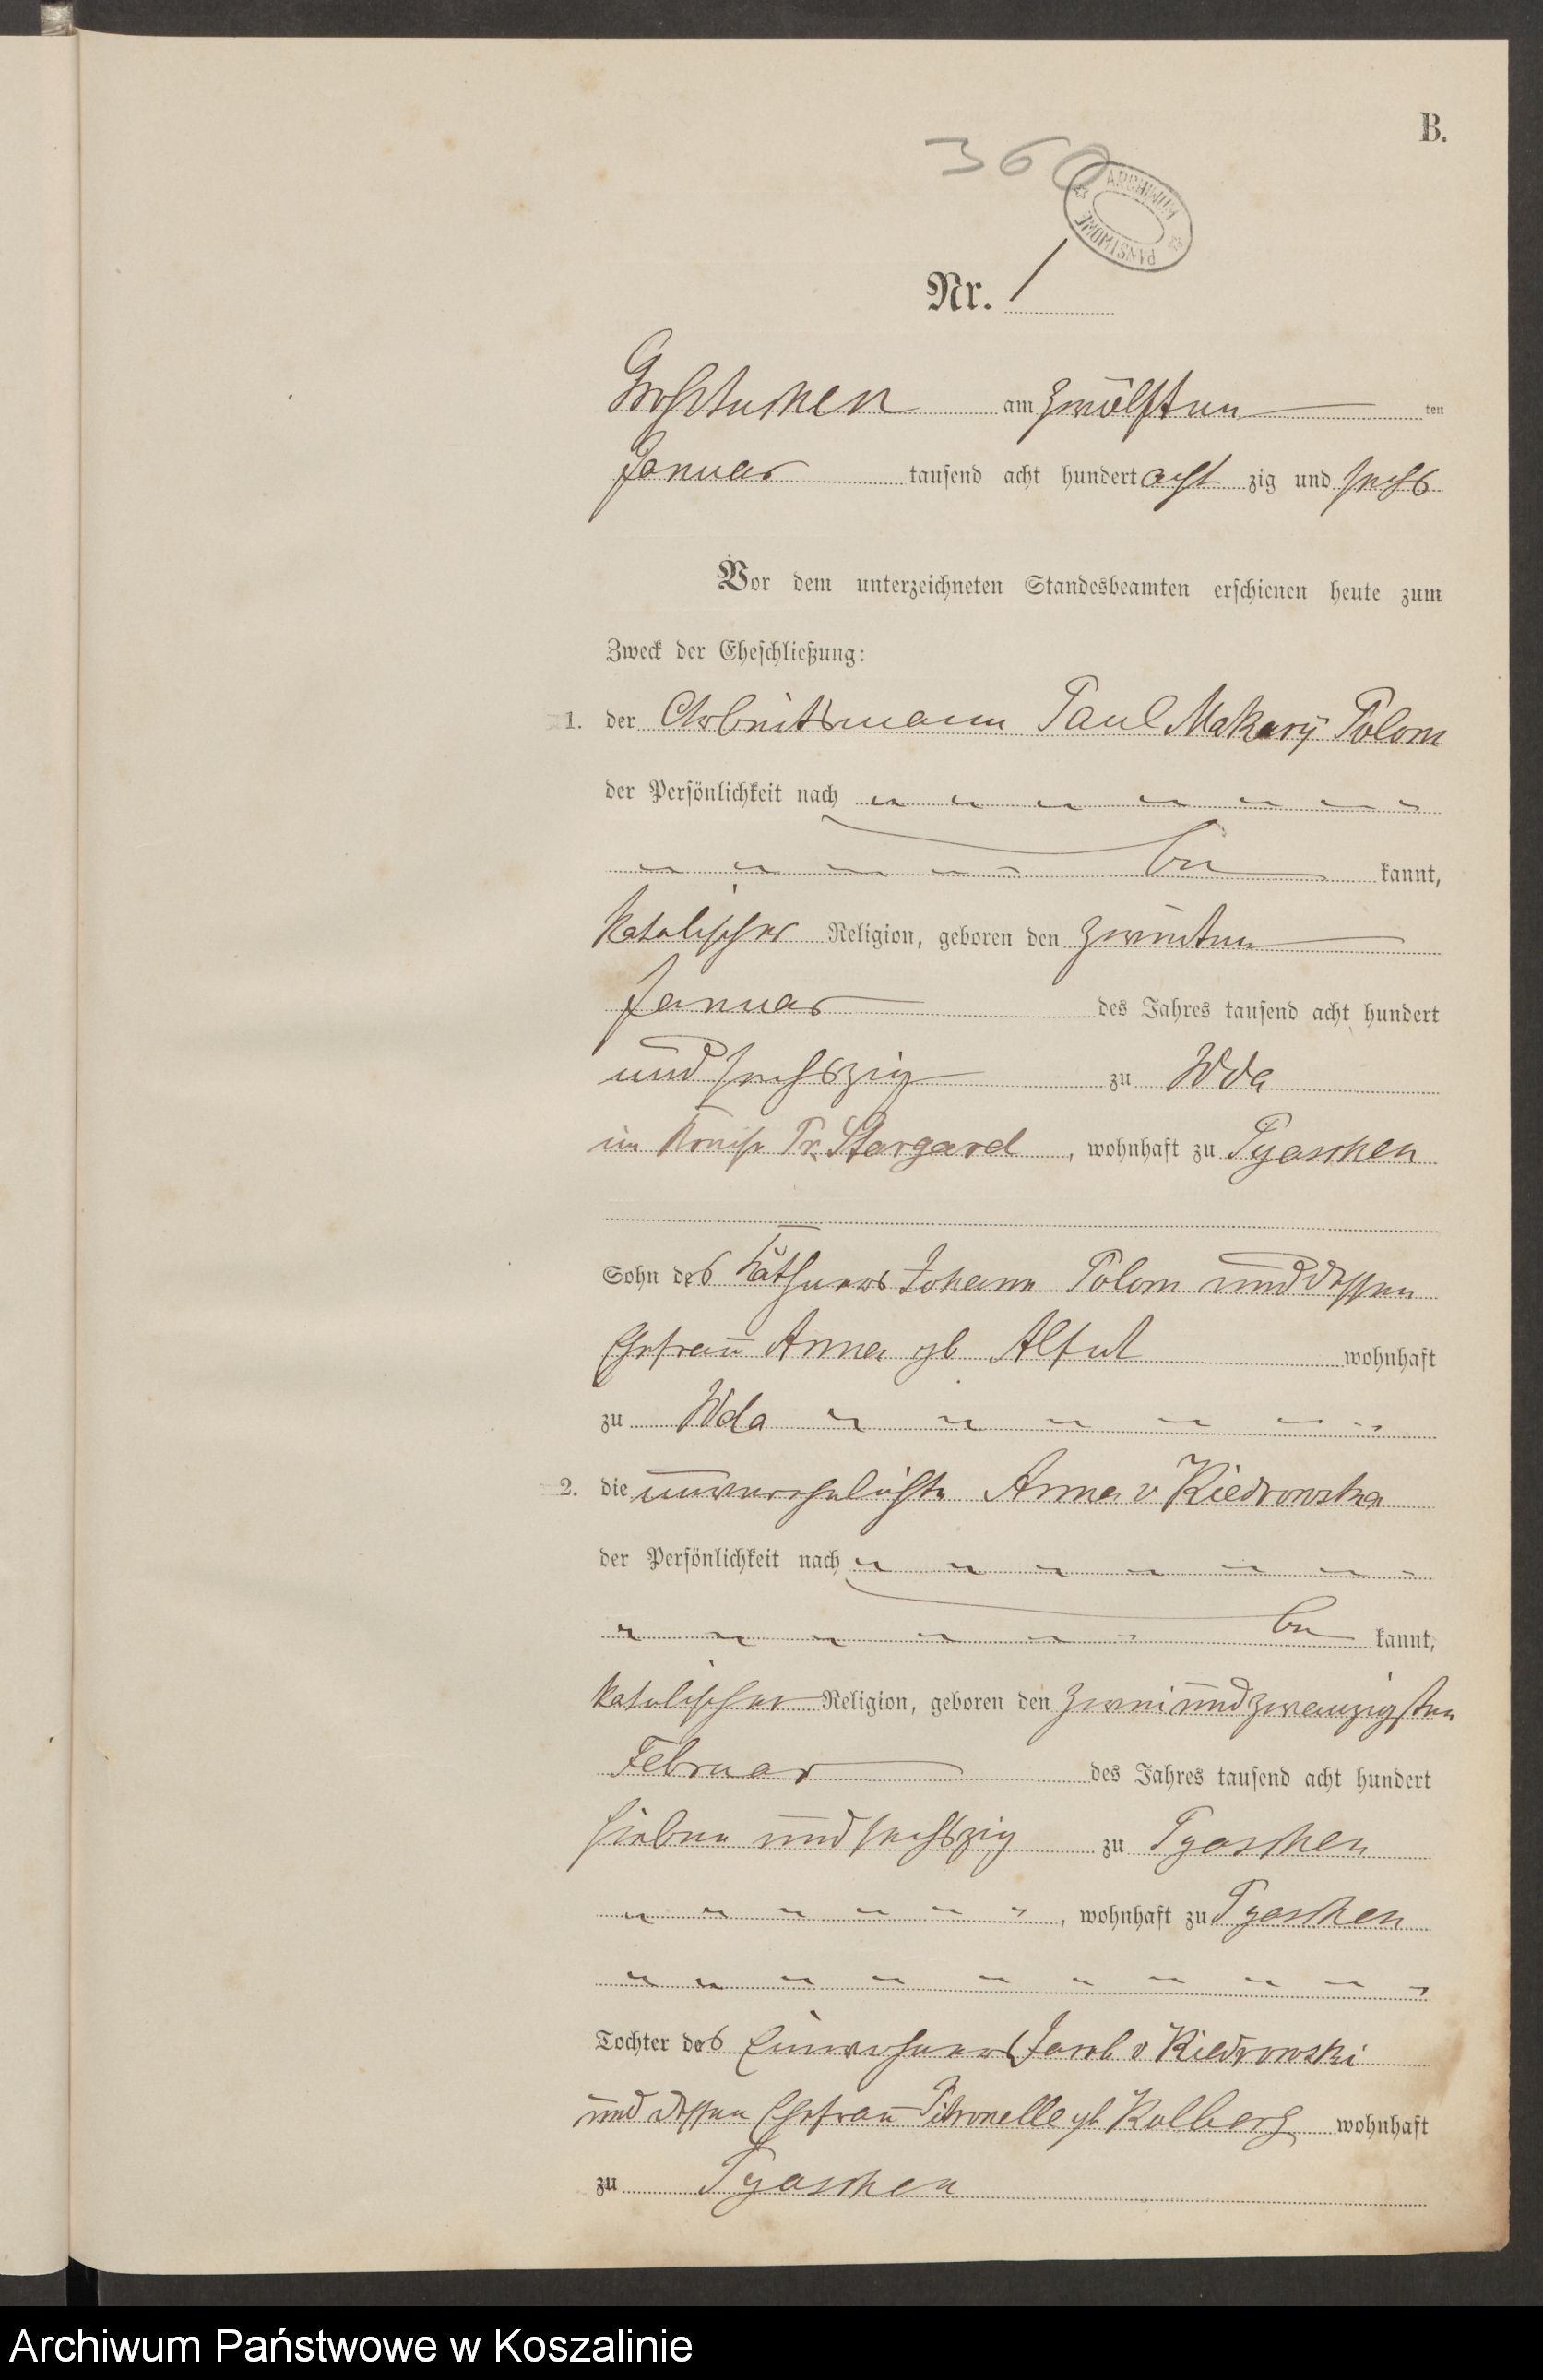 B.
360
ARCHIWUM PAŃSTWOWE
Nr. 1
Großtuchen am zwölften ten
Januar tausend acht hundert acht zig und sechs
Vor dem unterzeichneten Standesbeamten erschienen heute zum
Zweck der Eheschließung:
1. der Arbeitsmann Paul Makary Polom
der Persönlichkeit nach
be kannt,
katolischer Religion, geboren den zweiten
Januar des Jahres tausend acht hundert
und sechszig zu Wda
im Kreise Pr. Stargard, wohnhaft zu Pyaschen
Sohn des Käthners Johann Polom und dessen
Ehefrau Anna gb wohnhaft
zu Wda
2. die unverehelichte Anna v Kiedrowska
der Persönlichkeit nach
be kannt,
katolischer Religion, geboren den zweiundzwanzigsten
Februar des Jahres tausend acht hundert
sieben und sechszig zu Pyaschen
, wohnhaft zu Pyaschen
Tochter des Einwohners Jacob v Kiedrowski
und dessen Ehefrau Petronelle gb Kolberg wohnhaft
zu Pyaschen
Archiwum Państwowe w Koszalinie